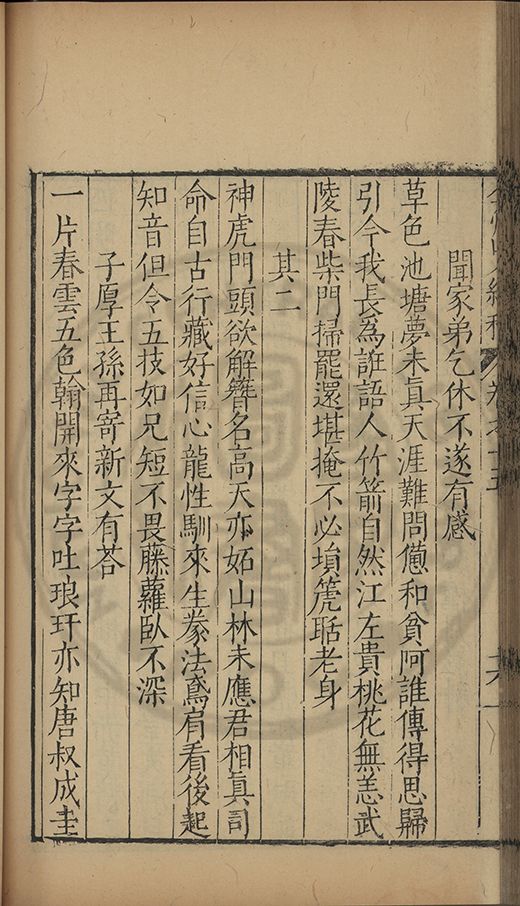 聞家弟乞休不遂有感
草色池塘夢未真天涯難問憊和貧阿誰傳得思歸
引令我長為誑語人竹箭自然江左貴桃花無恙武
陵春柴門掃罷還堪掩不必塤篪聒老身
其二
神虎門頭欲解簪名高天亦妬山林未應君相真司
命自古行藏好信心龍性馴來生豢法鳶肩看後起
知音但令五技如兄短不畏藤蘿臥不深
子厚王孫再寄新文有荅
一片春雲五色翰開來字字吐琅玕亦知唐叔成圭